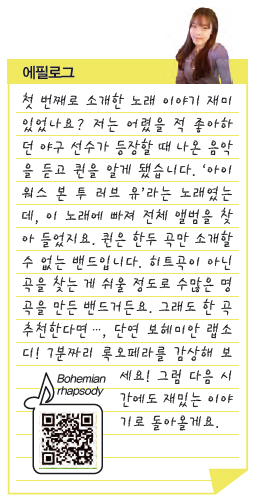 에필로그
첫 번째로 소개한 노래 이야기 재미
있었나요? 저는 어렸을 적 좋아하
던 야구 선수가 등장할 때 나온 음악
을 듣고 퀸을 알게 됐습니다. ‘아이
워스 본 투 러브 유’라는 노래였는
데, 이 노래에 빠져 전체 앨범을 찾
아 들었지요. 퀸은 한두 곡만 소개할
수 없는 밴드입니다. 히트곡이 아닌
곡을 찾는 게 쉬울 정도로 수많은 명
곡을 만든 밴드거든요. 그래도 한 곡
추천한다면 …, 단연 보헤미안 랩소
디! 7분짜리 록오페라를 감상해 보
세요! 그럼 다음 시
간에도 재밌는 이야
기로 돌아올게요.
Bohemian
rhapsody